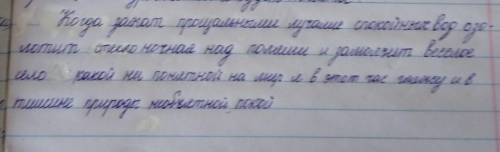 Когда закат прощальными лучами спокойных вод озо-
лотит стекло ночная над полями и замолчит веселое
село какой ни понятной на лир я в этот час гляжу и в
тишине природе необъятной покой